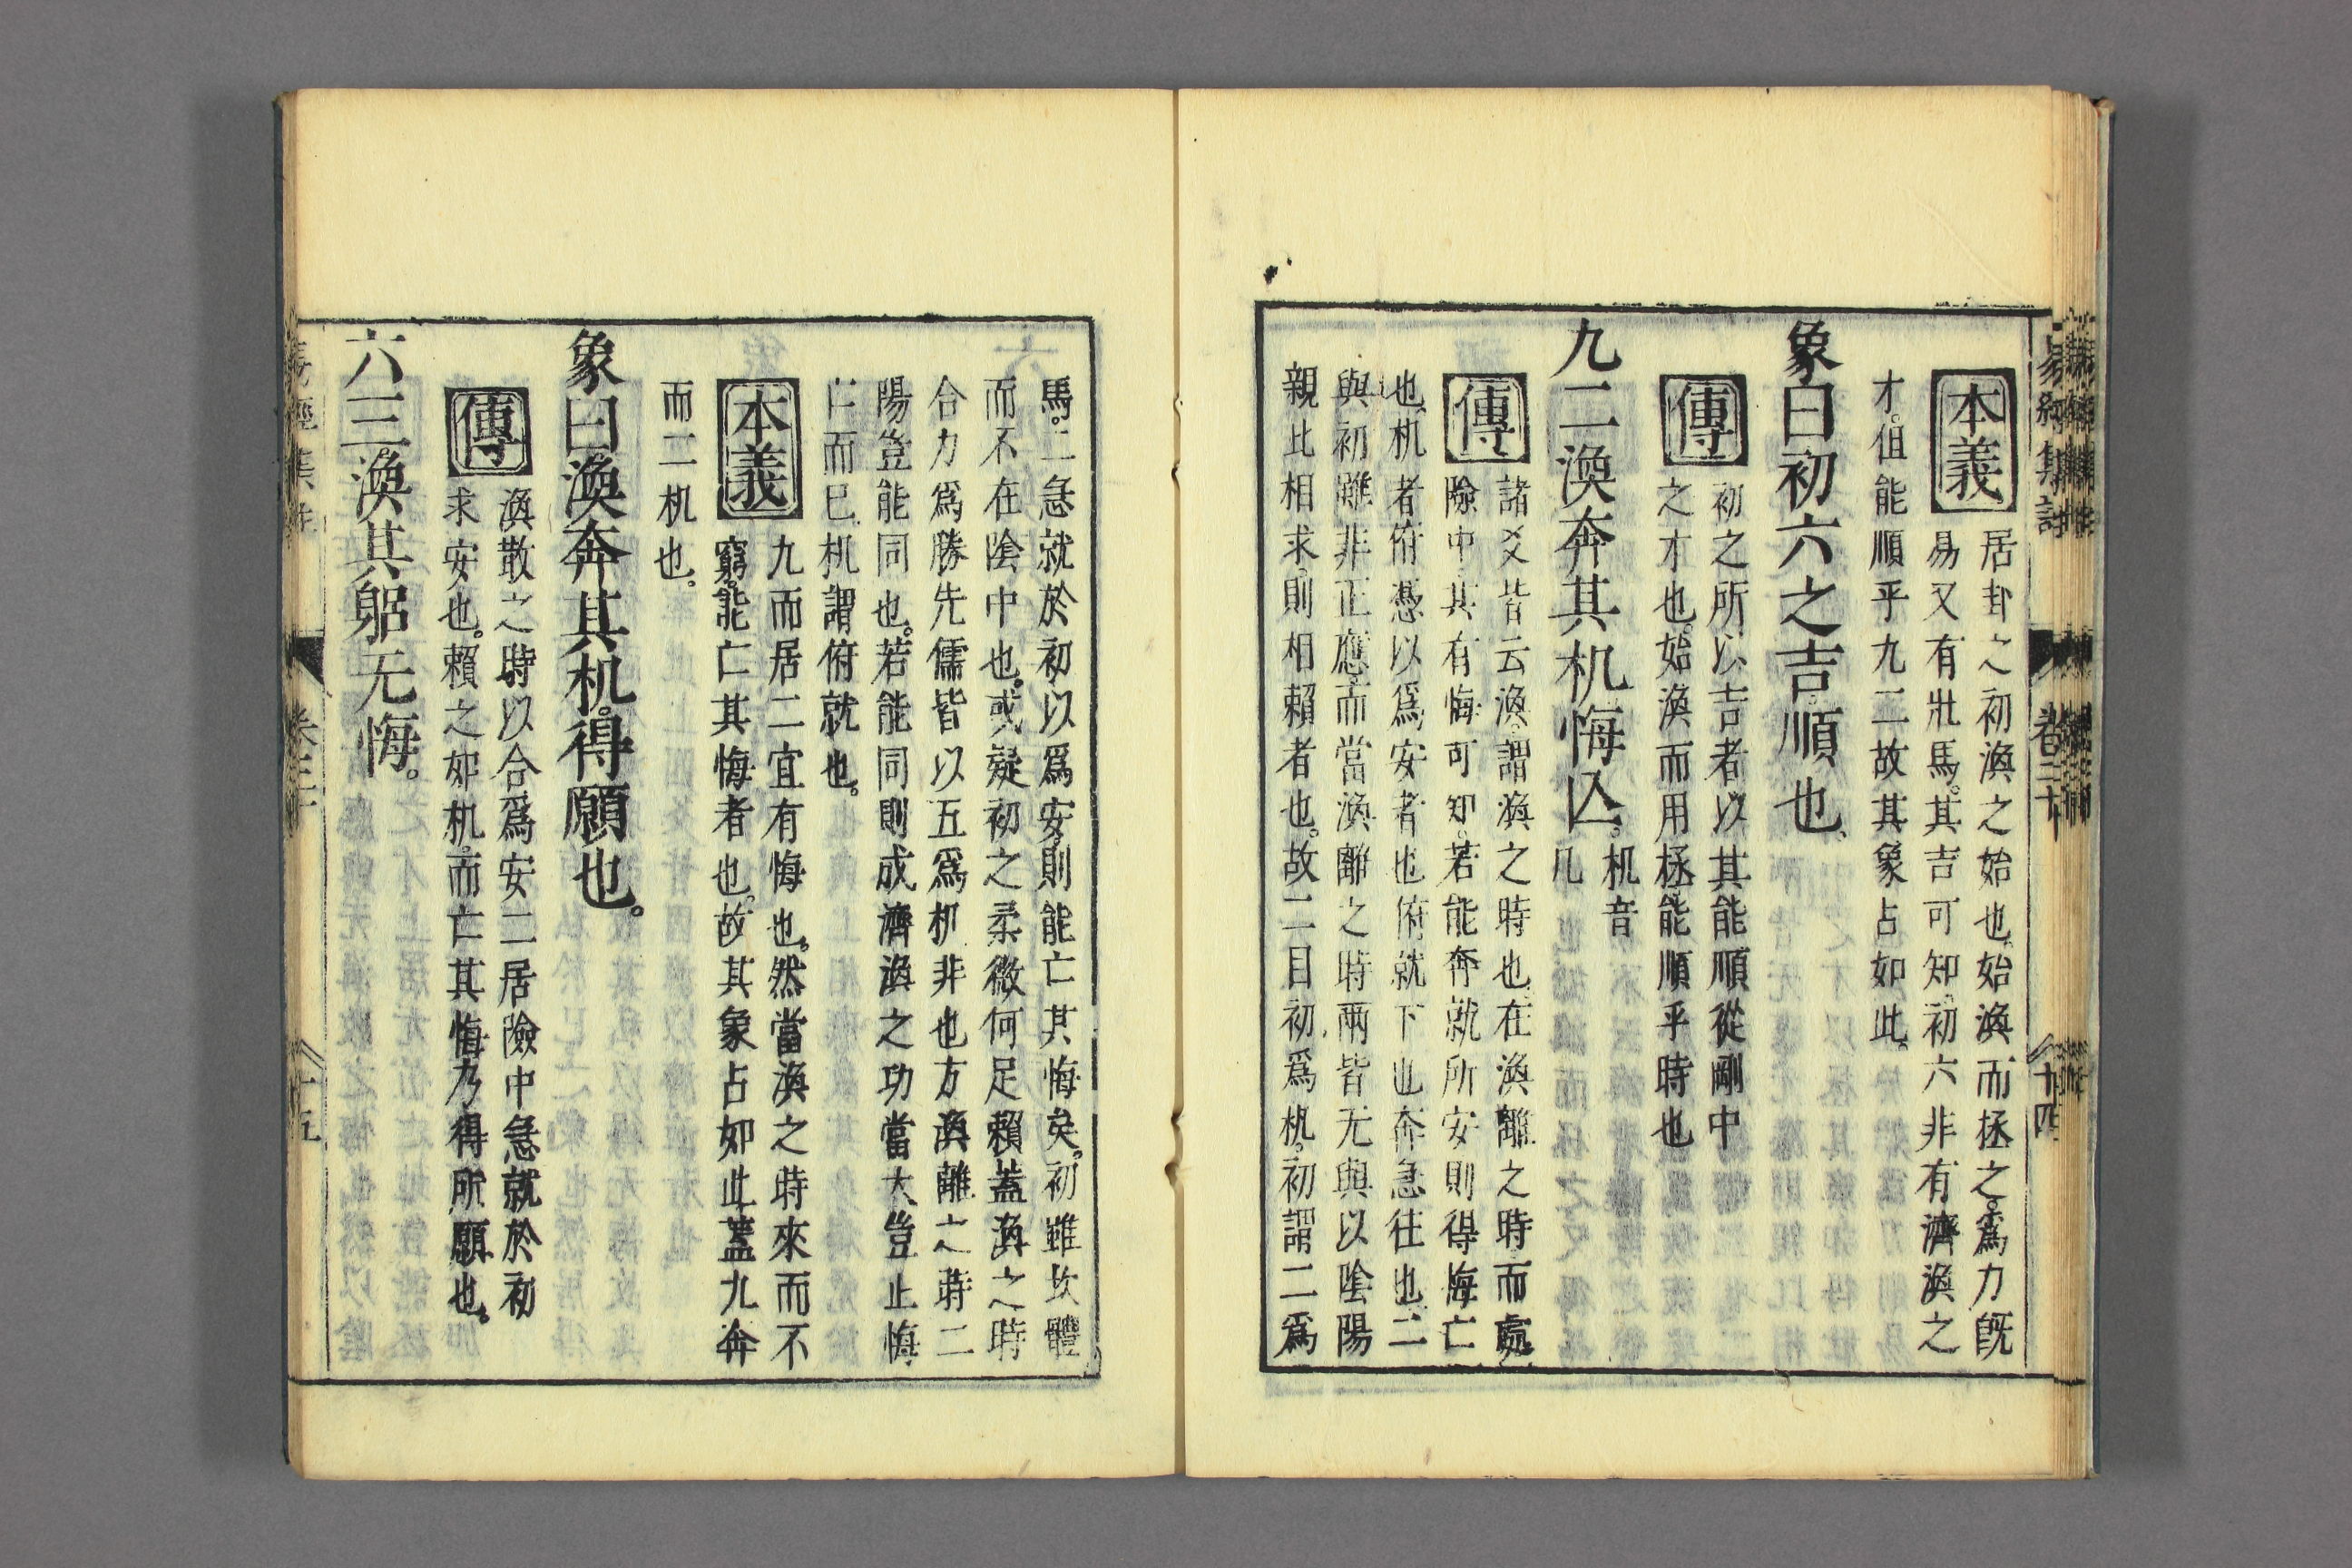 易經集註 卷二十 十四
本義 居卦之初渙之始也始渙而拯之爲力既
易又有壯馬其吉可知初六非有濟渙之
才但能順乎九二故其象占如此
象曰初六之吉順也
傳 初之所以吉者以其能順從剛中
之才也始渙而用拯能順乎時也
九二渙奔其机悔亾 机音
几
傳 諸爻皆云渙謂渙之時也在渙離之時而處
險中其有悔可知若能奔就所安則得悔亡
也机者俯憑以爲安者也俯就下也奔急往也二
與初雖非正應而當渙離之時兩皆无與以陰陽
親比相求則相賴者也故二目初爲机初謂二爲
馬二急就於初以爲安則能亡其悔矣初雖坎體
而不在險中也或疑初之柔微何足賴蓋渙之時
合力爲勝先儒皆以五爲机非也方渙離之時二
陽豈能同也若能同則成濟渙之功當大豈止悔
亡而已机謂俯就也
本義 九而居二宜有悔也然當渙之時來而不
窮能亡其悔者也故其象占如此蓋九奔
而二机也
象曰渙奔其机得願也
傳 渙散之時以合爲安二居險中急就於初
求安也賴之如机而亡其悔乃得所願也
六三渙其躬无悔
易經集註 卷二十 十五